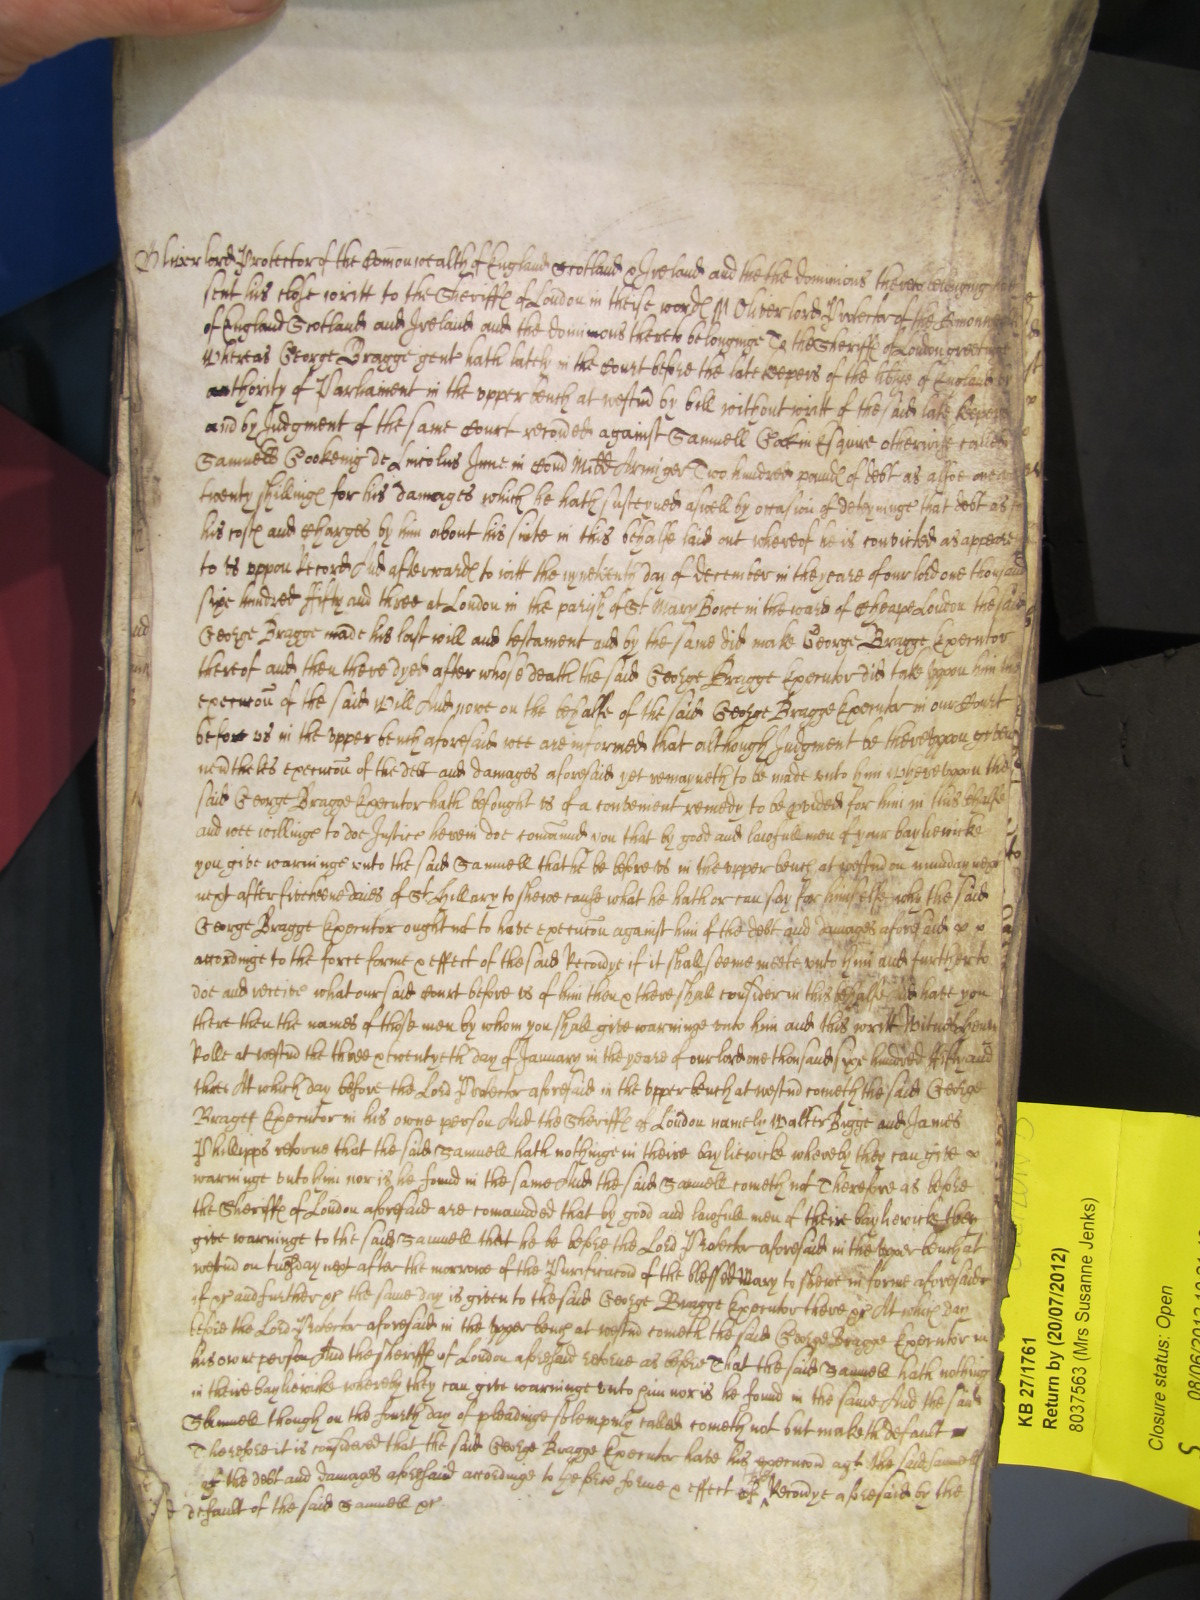 Oliver lord Protector of the Comonwealth of England Scotland & Ireland and the the dominions thereto belonging
sent his close writt to the Sheriffs of London in theise words Oliver lord Protector of the
of England Scotland and Ireland and the dominions thereto belonginge To the Sheriffs of London greetinge
Whereas George Bragge gent hath lately in the Court before the late keepers of the libtie of England by
authority of Parliament in the upper bench at westm by bill without writt of the said late keepers
and by Judgment of the same Court recoved against Samuell Esquire otherwise called
Samuell de Lincolns Inne in Com Midd Armiger Two hundred pounds of debt as alsoe
twenty shillings for his damages which he hath susteyned aswell by occasion of deteyninge that debt as
his costs and Charges by him about his suite in this behalfe laid out whereof he is convicted as appeares
to us uppon Record And afterwards to witt the day of December in the yeare of our lord one thousand
sixe hundred fifty and three at London in the parish of St Mary Bowe in the ward of Cheape London the said
George Bragge made his last will and testament and by the same did make George Bragge Executor
thereof and then there dyed after whose death the said George Bragge Executor did take uppon him the
execucon of the said Will And nowe on the behalfe of the said George Bragge Executor in our Court
before us in the upper bench aforesaid wee are informed that although Judgment be thereuppon given
execucon of the debt and damages aforesaid yet remayneth to be made unto him Whereuppon the
said George Bragge Executor hath besought us of a convenient remedy to be pvided for him in this behalfe
and wee willinge to doe Justice herein doe comaund you that by good and lawfull men of your bayliewicke
you give warninge unto the said Samuell that he be before us in the upper bench at westm on munday next
next after fifteene daies of St Hillary to shewe cause what he hath or can say for himselfe why the said
George Bragge Executor ought not to have execucon against him of the debt and damages aforesaid
accordinge to the force forme & effect of the said Recovye if it shall seeme meete unto him and further to
doe and receive what our said Court before us of him then & there shall consider in this behalfe And have you
there then the names of those men by whom you shall give warninge unto him and this writt Witnes Henry
Rolle at westm the three & twentyeth day of January in the yeare of our lord one thousand sixe hundred fifty and
three At which day before the Lord Protector aforesaid in the upper bench at westm cometh the said George
Bragge Executor in his owne person And the Sheriffs of London namely Walter Bigge and James
Phillipps retorne that the said Samuell hath nothinge in theire bayliewicke whereby they can give
warninge unto him nor is he found in the same And the said Samuell cometh not Therefore as before
the Sheriffs of London aforesaid are comaunded that by good and lawfull men of theire bayliewicke they
give warninge to the said Samuell that he be before the Lord Protector aforesaid in the upper bench at
westm on tuesday next after the morrowe of the Purificacon of the blessed Mary to shewe in forme aforesaid
if &c and further &c the same day is given to the said George Bragge Executor there &c At which day
before the Lord Protector aforesaid in the upper bench at westm cometh the said George Bragge Executor in
his owne person And the sheriffs of London aforesaid retorne as before That the said Samuell hath nothing
in theire bayliewicke whereby they can give warninge unto him nor is he found in the same And the said
Samuell though on the fourth day of pleadinge solempnly called cometh not but maketh default
Therefore it is considered that the said George Bragge Executor have his execucon agt the said Samuell
of the debt and damages aforesaid accordinge to the force forme & effect of the Recovye aforesaid by the
default of the said Samuell &c
KB 27/1761
Return by (20/07/2012)
8037563 (Mrs Susanne Jenks)
Closure status: Open